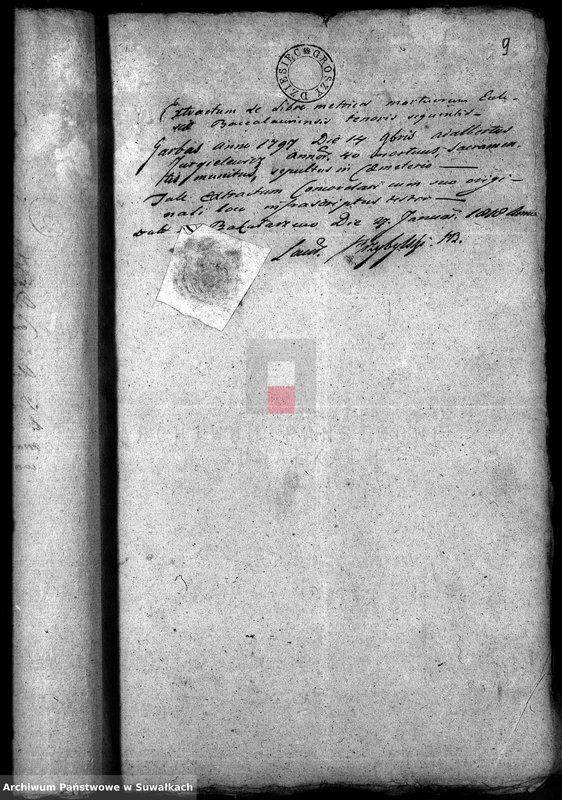 9
DZIESIĘC GROSZY
Extractum de Libro metrices mortuorum Eccle-
siæ Baccalaurensis tenoris sequentis
Garbas Anno 1797 Die 14 9bris Adalbertus
Jurgielewicz annor. 40 mortuus, Sacramen-
tis munitus, sepultus in Cæmeterio
Tale Extractum Concordari cum suo origi-
nali loco infrascriptus testor
Bakałarzewo Die 27 Januar. 1818 Anno
Laur. Przybylski
Archiwum Państwowe w Suwałkach